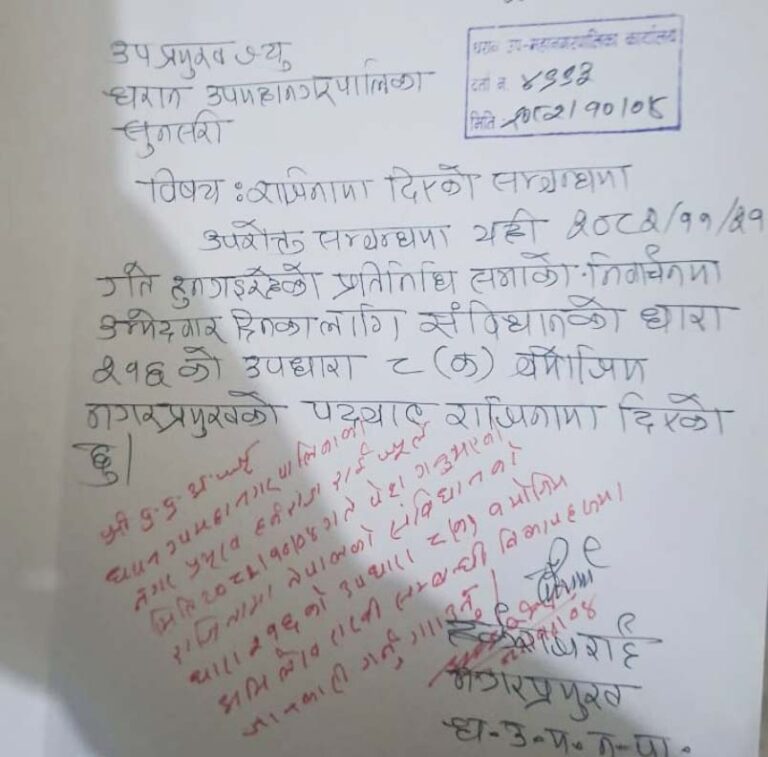 उप प्रमुख ज्यु
धरान उपमहानगरपालिका
सुनसरी
धरान उप-महानगरपालिका कार्यालय
दर्ता नं. ४११३
मिति: २०८२/१०/०४
विषय : राजिनामा दिएको सम्बन्धमा
उपरोक्त सम्बन्धमा यही २०८२/११/२१
गते हुनगइरहेको प्रतिनिधि सभाको निर्वाचनमा
उम्मेदवार दिनका लागि संविधानको धारा
२१६ को उपधारा ८ (क) बमोजिम
नगरप्रमुखको पदबाट राजिनामा दिएको
छु।
श्री प्र.प्र.अ.ज्यू
धरान उपमहानगरपालिकाका
नगर प्रमुख हर्कराज राई ज्यूले
मिति २०८२/१०/०४ गते पेश गर्नुभएको
राजिनामा नेपालको संविधानको
धारा २१६ को उपधारा ८ (क) बमोजिम
अभिलेख राखी सम्बन्धी निकायहरुमा
जानकारी गर्नु गराउनु।
हर्कराज राई
नगरप्रमुख
ध.उ.म.न.पा.